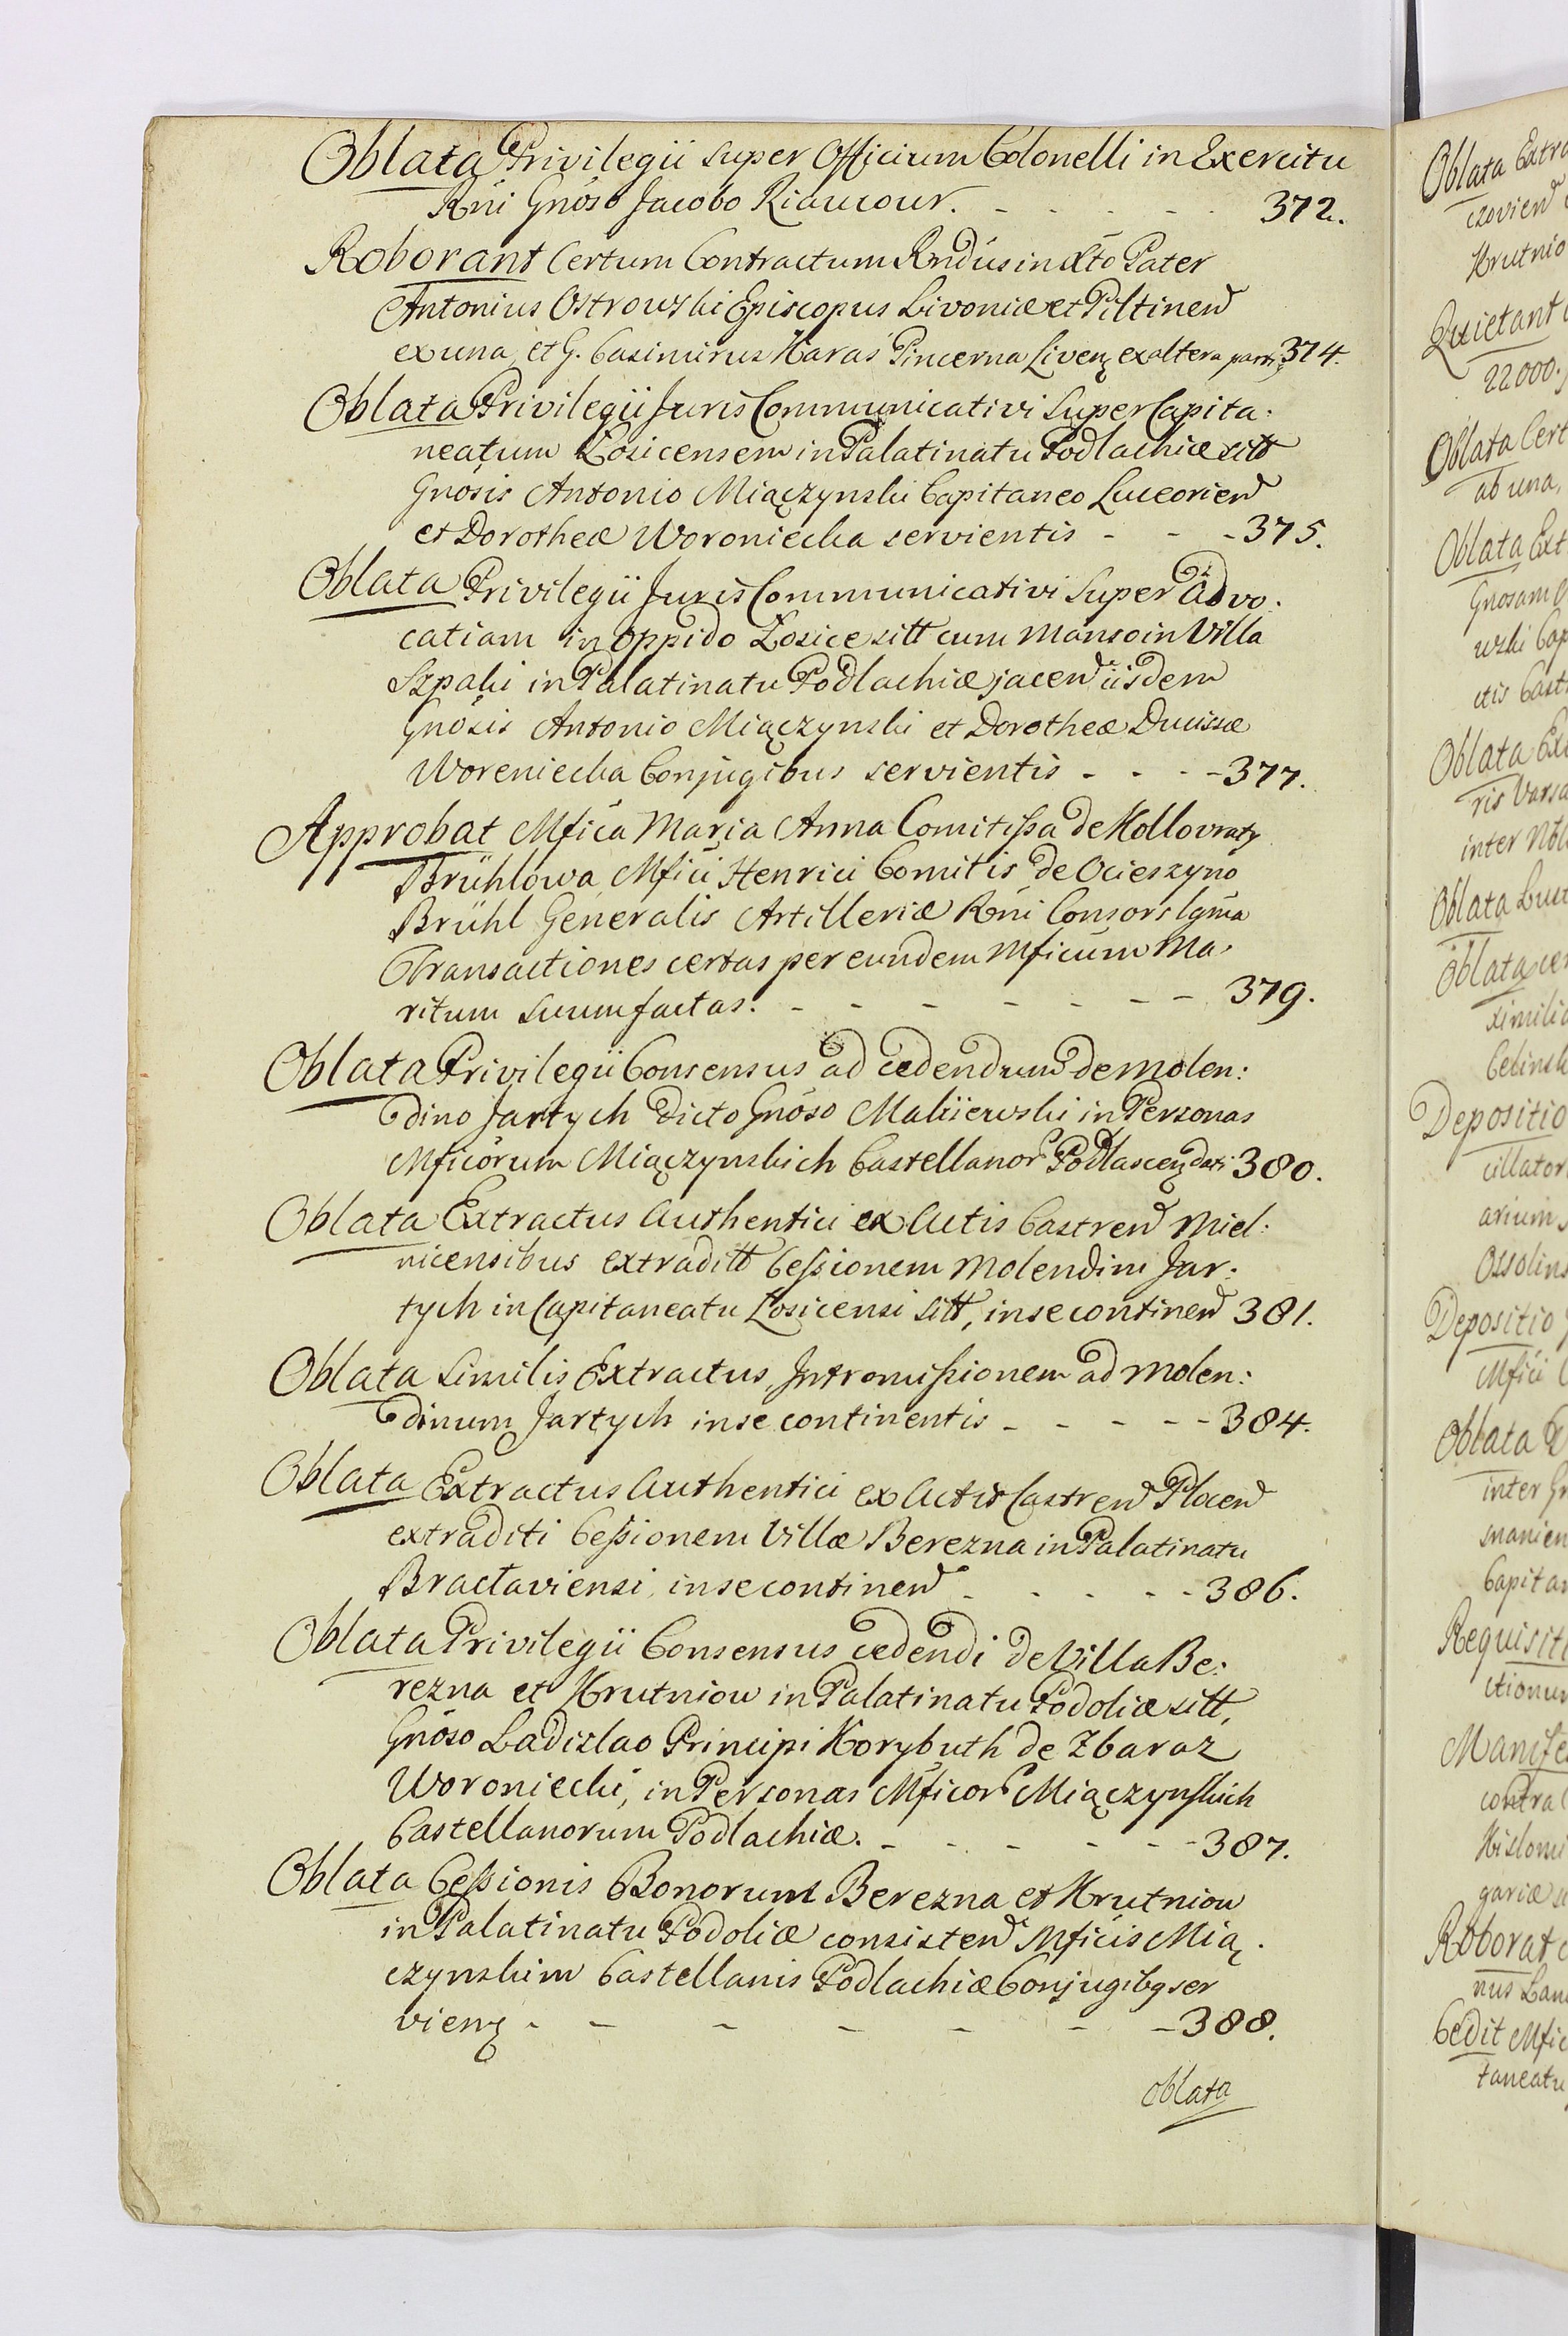 Oblata Privilegii super Officium Colonelli in Exercitu
Rni Gnoso Jacobo Riaucour. - - - - - 372.
Roborant Certum Contractum Rndus in Xto Pater
Antonius Ostrowski Episcopus Livoniæ et Piltinen
ex una, et G. Casimirus Karas Pincerna Livenȝ ex altera part, 374.
Oblata Privilegii Juris Communicativi super Capita:
neatum Łosicensem in Palatinatu Podlachiæ sitt
Gnosis Antonio Miączynski Capitaneo Luceorien
et Dorotheæ Woroniecka servientis - - - 375.
Oblata Privilegii Juris Communicativi super Advo:
catiam in oppido Łosice sitt cum Manso in Villa
Szpaki in Palatinatu Podlachiæ jacen iisdem
Gnosis Antonio Miączynski et Dorotheæ Ducissæ
Woreniecka Conjugibus servientis - - - - 377.
Approbat Mfica Maria Anna Comitissa de Kollovraty
Brühlowa, Mfici Henrici Comitis de Ocieszyno
Brühl Generalis Artilleriæ Rni Consors lgma
Transactiones certas per eundem Mficum Ma:
ritum suum factas. - - - - - - - 379.
Oblata Privilegii Consensus ad cedendum de Molen:
dino Jartych dicto Gnoso Makiiewski in Personas
Mficorum Miączynskich Castellanor Podlascenȝ dati 380.
Oblata Extractus Authentici ex Actis Castren Miel:
nicensibus extraditt Cessionem Molendini Jar:
tych in Capitaneatu Łosicensi sitt, in se continen 381.
Oblata similis Extractus, Intromissionem ad Molen:
dinum Jartych in se continentis - - - - - 384.
Oblata Extractus Authentici ex Actis Castren Plocen
extraditi Cessionem Villæ Berezna in Palatinatu
Bractaviensi in se continen - - - - - 386.
Oblata Privilegii Consensus cedendi de Villa Be:
rezna et Krutniow in Palatinatu Podoliæ sitt,
Gnoso Ladislao Principi Korybuth de Zbaraz
Woroniecki, in Personas Mficor Miączynskich
Castellanorum Podlachiæ. - - - - - - 387.
Oblata Cessionis Bonorum Berezna et Krutniow
in Palatinatu Podoliæ consisten Mficis Mią:
czynskim Castellanis Podlachiæ Conjugibq ser
vienȝ - - - - - - 388.
Oblata
Oblata Extra
czovien
Krutnio
Quietant
22000.
Oblata Cert
ab una,
Oblata Ext
Gnosam
wski Cap
ctis Cast
Oblata Ex
ris Varsa
inter Nobl
Oblata
Oblata cer
simili
Celinsk
Depositio
cillator
arium
Ossolins
Depositio
Mfici
Oblata
inter Gn
snanien
Capitan
Requisiti
ctionum
Manifes
contra
Kislowi
gariæ
Roborat
nus
Cedit Mfic
taneatu